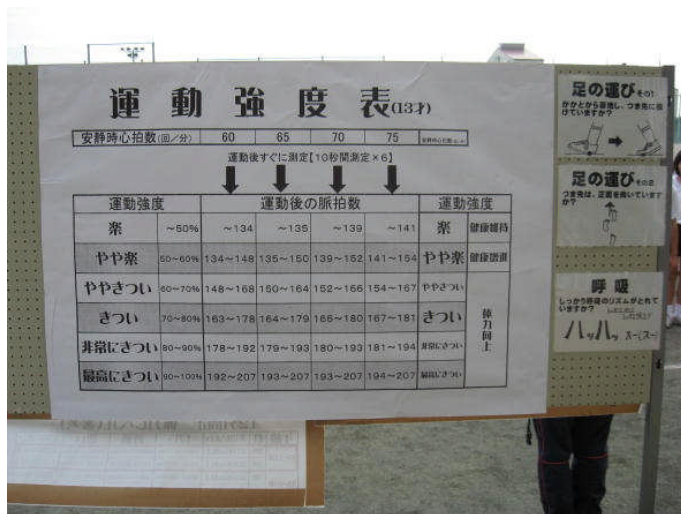 運動強度表(13才)
安静時心拍数(回/分) 60 65 70 75
運動後すぐに測定【10秒間測定×6】
運動強度 運動後の脈拍数 運動強度
楽 ~50% ~134 ~135 ~139 ~141 楽 健康維持
やや楽 50~60% 134~148 135~150 139~152 141~154 やや楽 健康増進
ややきつい 60~70% 148~168 150~164 152~166 154~167 ややきつい
きつい 70~80% 163~178 164~179 166~180 167~181 きつい 体力向上
非常にきつい 80~90% 178~192 179~193 180~193 181~194 非常にきつい
最高にきつい 90~100% 192~207 193~207 193~207 194~207 最高にきつい
足の運び その1
かかとから着地し、つま先に抜
けていますか?
足の運び その2
つま先は、正面を向いています
か?
呼吸
しっかり呼吸のリズムがとれて
いますか?
ハッハッ スー(スー)